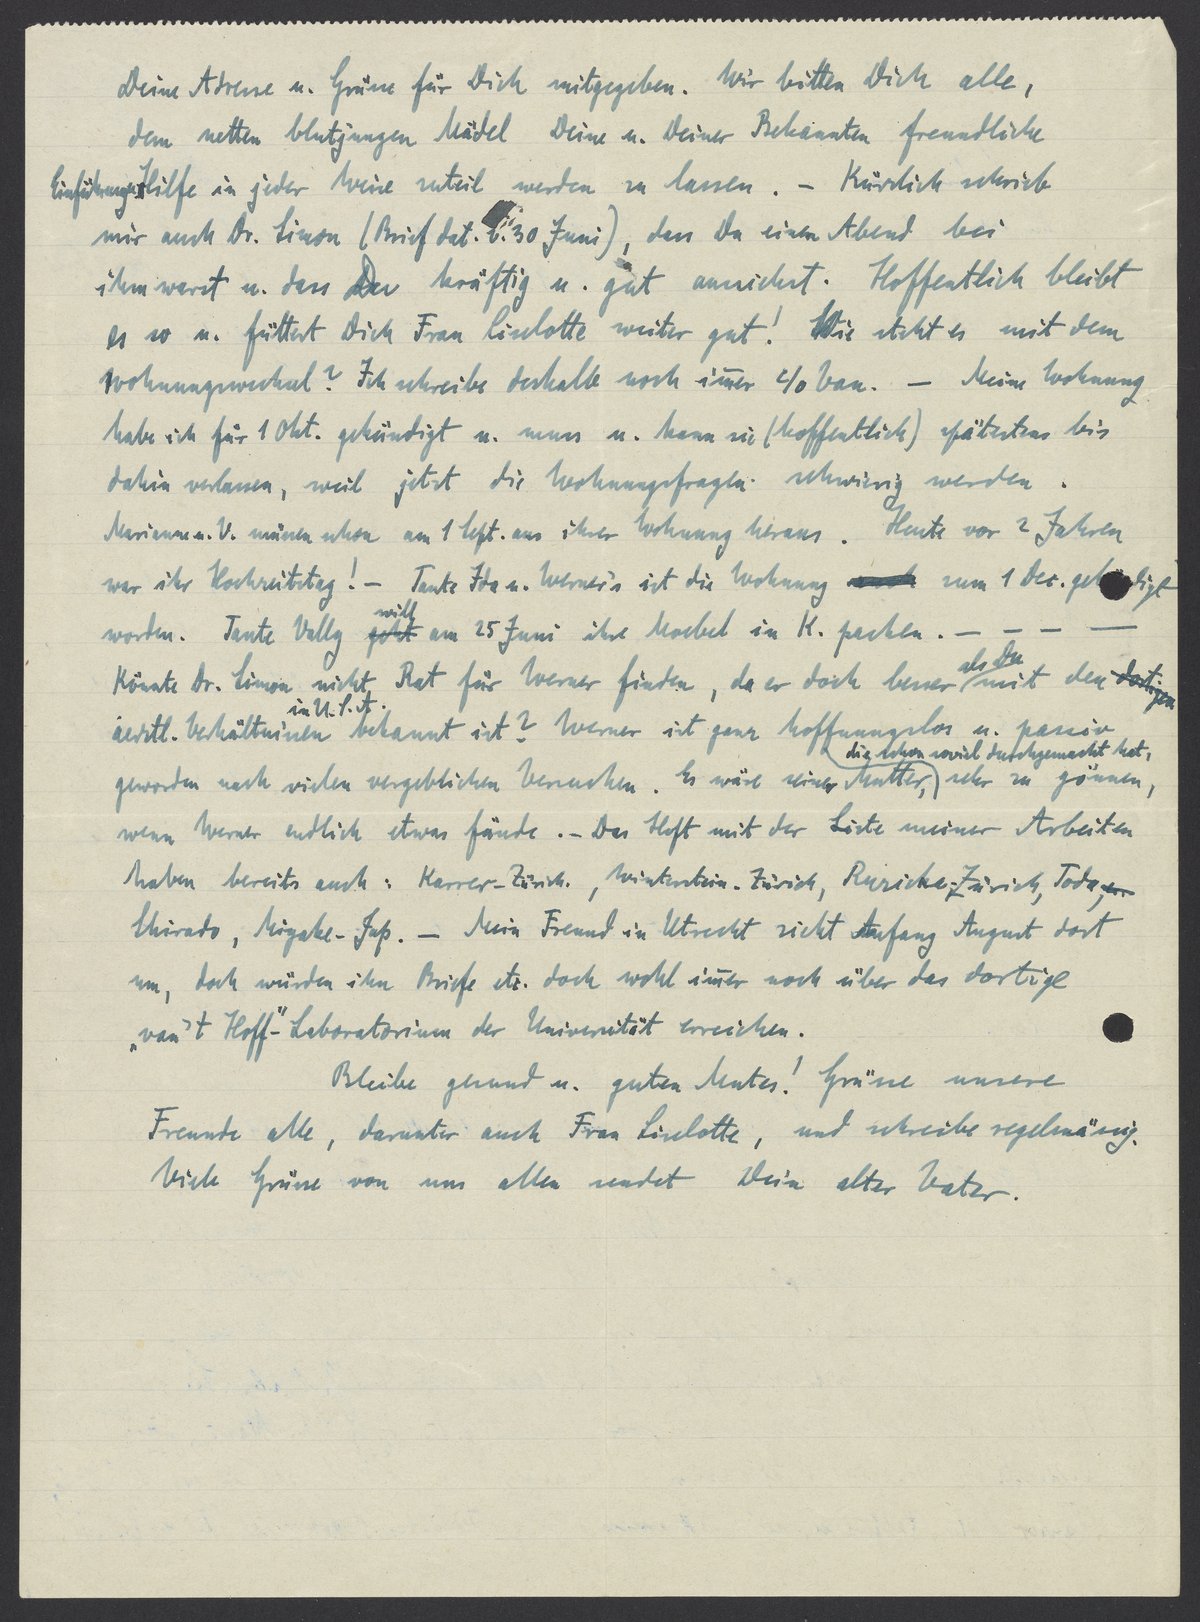 Deine Adresse u. Grüsse für Dich mitgegeben. Wir bitten Dich alle,
dem netten blutjungen Mädel Deine u. Deiner Bekannten freundliche
Einführungs Hilfe in jeder Weise zuteil werden zu lassen. – Kürzlich schrieb
mir auch Dr. Simon (Brief dat. 30 Juni), dass Du einen Abend bei
ihm warst u. dass Du kräftig u. gut aussiehst. Hoffentlich bleibt
es so u. füttert Dich Frau Liselotte weiter gut! Wie steht es mit dem
Wohnungswechsel? Ich schreibe deshalb noch im̅er c/o Van. – Meine Wohnung
habe ich für 1 Okt. gekündigt u. muss u. kann sie (hoffentlich) spätestens bis
dahin verlassen, weil jetzt die Wohnungsfragen schwierig werden.
Marianne u. V. müssen schon am 1 Sept. aus ihrer Wohnung heraus. Heute vor 2 Jahren
war ihr Hochzeitstag! – Tante Ida u. Werner's ist die Wohnung zum 1 Dez. gekündigt
will
worden. Tante Vally geht am 25 Juni ihre Moebel in K. packen. – – – –
als Du
Könnte Dr. Simon nicht Rat für Werner finden, da er doch besser mit den dortigen
in U.S.A.
aerztl. Verhältnissen bekannt ist? Werner ist ganz hoffnungslos u. passiv
die schon soviel durchgemacht hat,
geworden nach vielen vergeblichen Versuchen. Es wäre seiner Mutter, sehr zu gönnen,
wenn Werner endlich etwas fände. – Das Heft mit der Liste meiner Arbeiten
haben bereits auch: Karrer-Zürich, Winterstein-Zürich, Ruzicka-Zürich, Toda,
Shirado, Miyake-Jap. – Mein Freund in Utrecht zieht Anfang August dort
um, doch würden ihn Briefe etc. doch wohl im̅er noch über das dortige
„van't Hoff"-Laboratorium der Universität erreichen.
Bleibe gesund u. guten Mutes! Grüsse unsere
Freunde alle, darunter auch Frau Liselotte, und schreibe regelmässig.
Viele Grüsse von uns allen sendet Dein alter Vater.